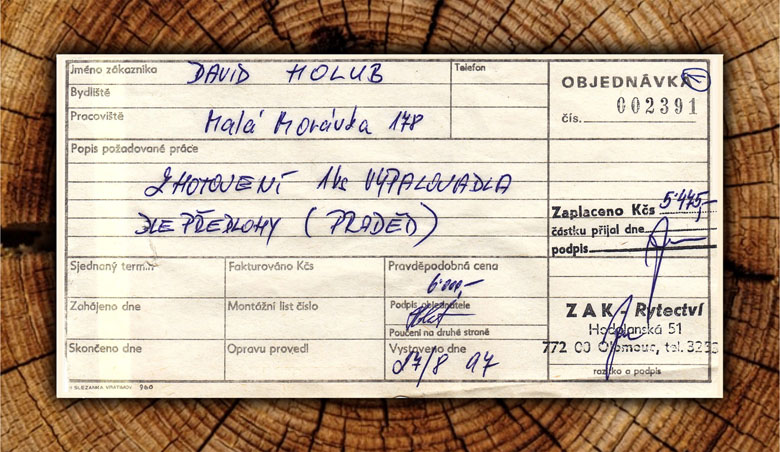 Jméno zákazníka DAVID HOLUB Telefon
Bydliště
Pracoviště Malá Morávka 178
OBJEDNÁVKA
čís. 002391
Popis požadované práce
ZHOTOVENÍ 1ks VYPALOVADLA
DLE PŘEDLOHY (PRADĚD)
Zaplaceno Kčs 5475,-
částku přijal dne
podpis
Sjednaný termín Fakturováno Kčs Pravděpodobná cena
6000,-
Zahájeno dne Montážní list číslo Podpis objednatele
Poučení na druhé straně
Skončeno dne Opravu provedl Vystaveno dne
27/8 97
ZAK - Rytectví
Hodolanská 51
772 00 Olomouc, tel.
razítko a podpis
SLEZANKA VRATIMOV 960